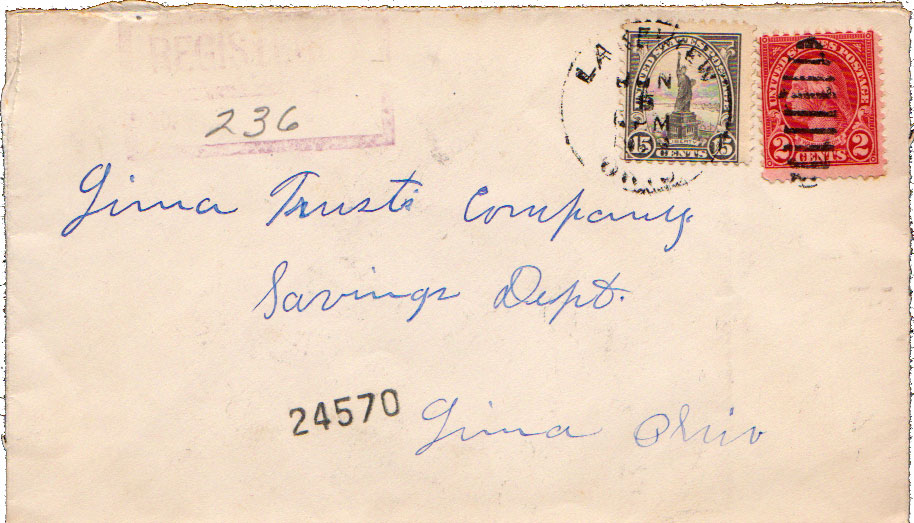 REGISTERED
236
LAKEVIEW
JUN
PM
OHIO
UNITED STATES POSTAGE
15 CENTS 15
UNITED STATES POSTAGE
2 CENTS 2
Lima Trust Company
Savings Dept.
24570
Lima Ohio